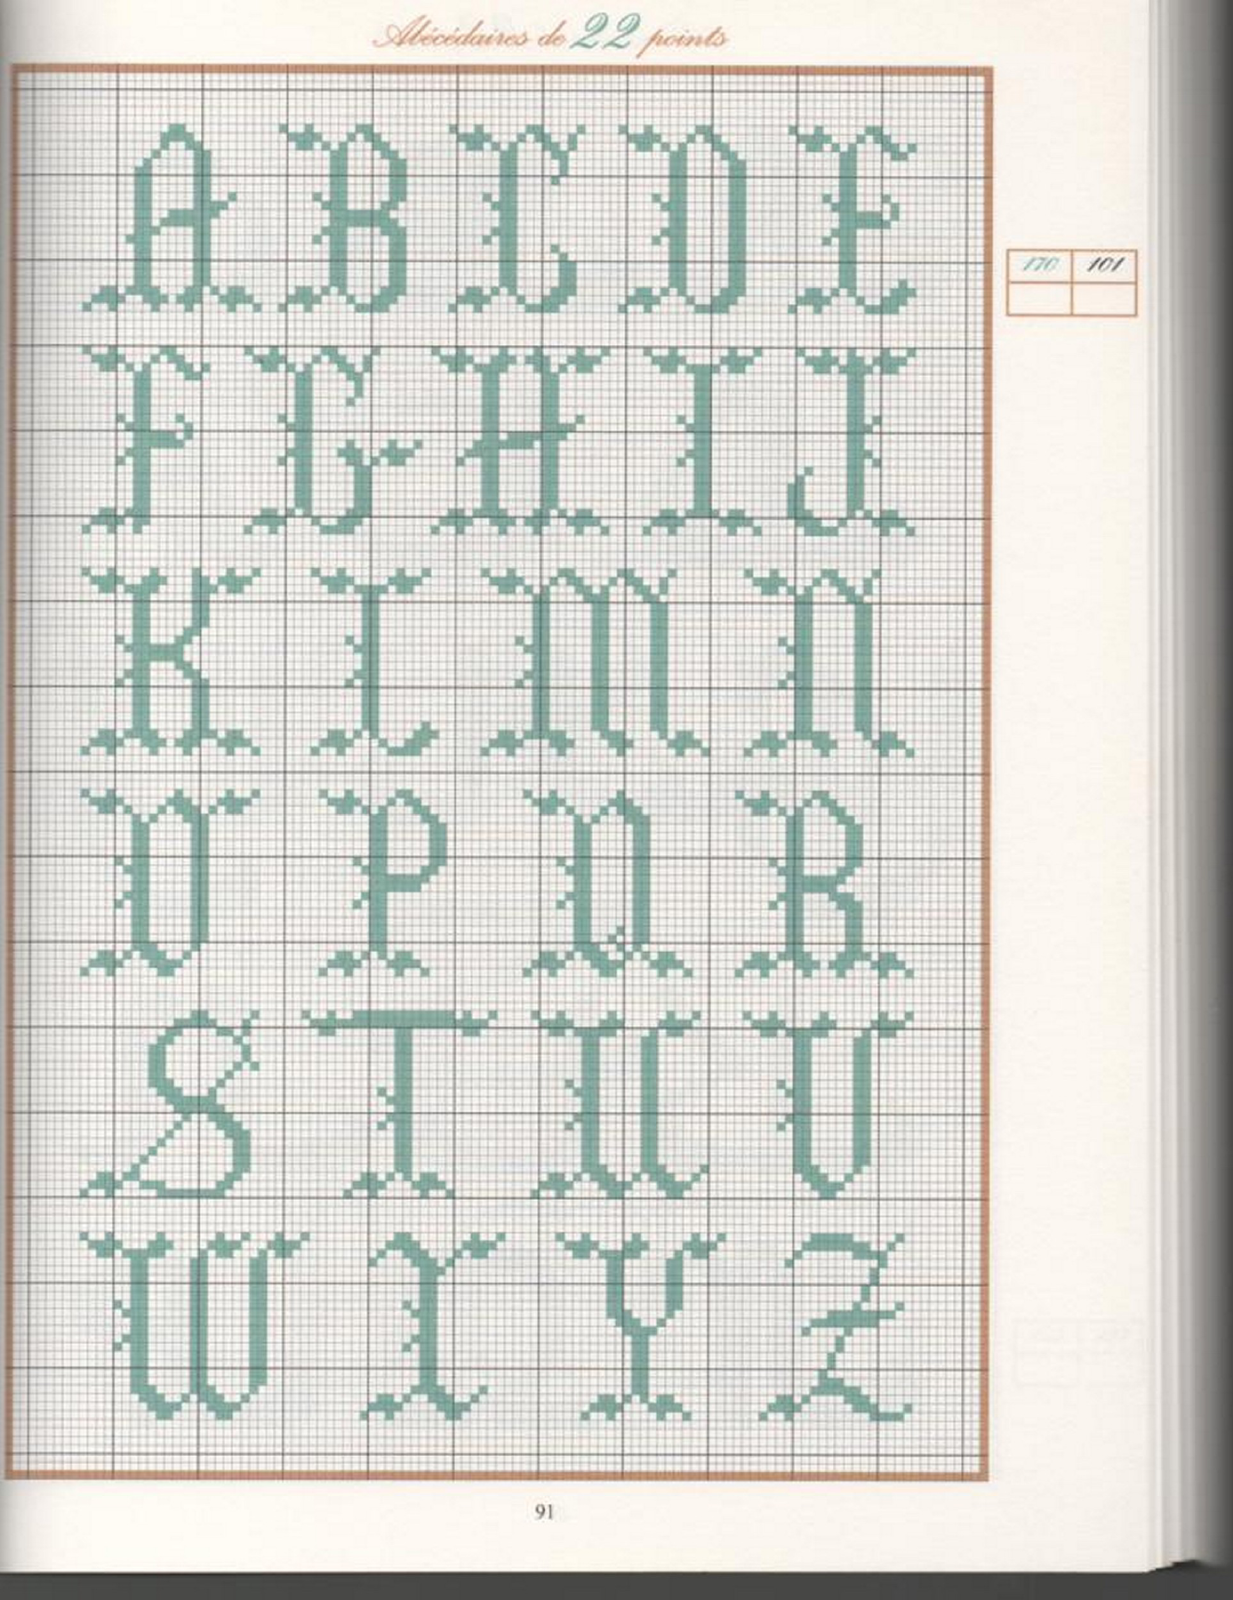 Abécédaires de 22 points
A B C D E
170 101
F G H I J
K L M N
O P Q R
S T U V
W X Y Z
91